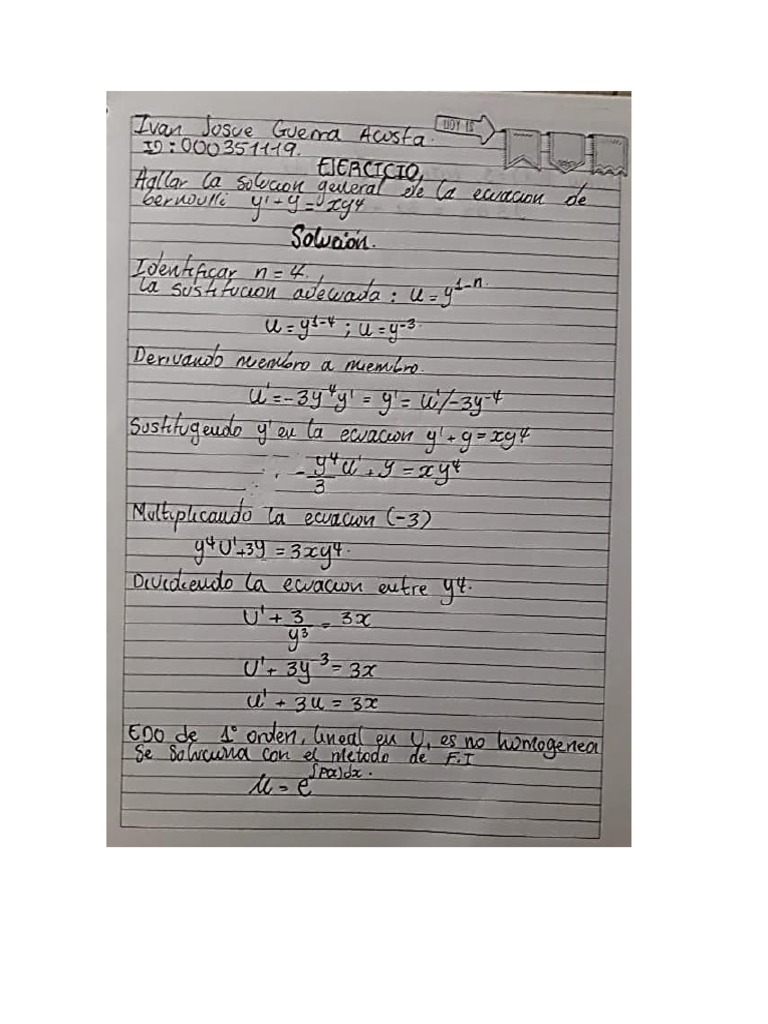 Ivan Josue Guerra Acosta.
ID: 000351119.
EJERCICIO,
Agllar la solucion general de la ecuacion de
bernoulli y' + y = xy⁴
Solución.
Identificar n = 4.
la sustitucion adecuada : u = y¹⁻ⁿ.
u = y¹⁻⁴ ; u = y⁻³.
Derivando miembro a miembro.
u' = -3y⁴y' = y' = u'/-3y⁻⁴
Sustitugendo y' en la ecuacion y' + y = xy⁴
- y⁴/3 u' + y = xy⁴
Multiplicando la ecuacion (-3)
y⁴u' + 3y = 3xy⁴.
Dividiendo la ecuacion entre y4.
U' + 3/y³ = 3x
U' + 3y³ = 3x
u' + 3u = 3x
EDO de 1° orden, lineal en y, es no homogenea
Se soluciona con el metodo de F.I
μ = e^∫P(x)dx.